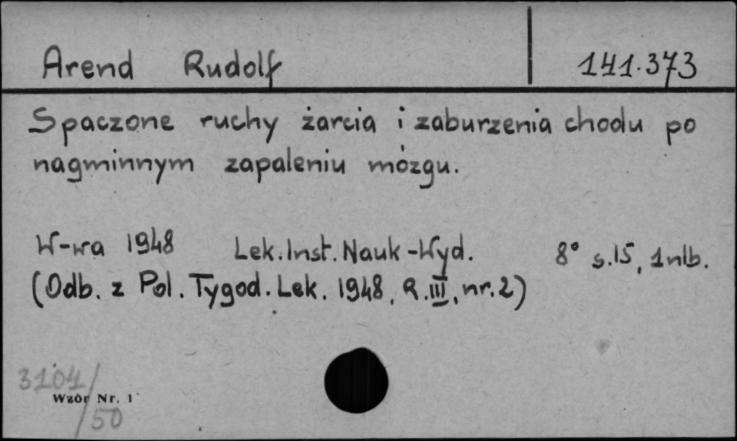 Arend Rudolf 141.373
Spaczone ruchy żarcia i zaburzenia chodu po
nagminnym zapaleniu mózgu.
W-wa 1948 Lek. Inst. Nauk-Wyd. 8° s.15, 1nlb.
(Odb. z Pol. Tygod. Lek. 1948, R.III, nr. 2)
3104/
Wzór Nr. 1
/50